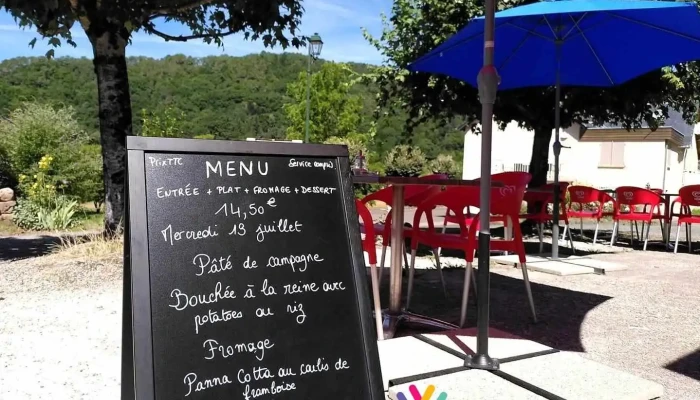 Prix TTC
Service compris
MENU
ENTRÉE + PLAT + FROMAGE + DESSERT
14,50€
Mercredi 19 juillet
Pâté de campagne
Bouchée à la reine avec
potatoes ou riz
Fromage
Panna Cotta au coulis de
framboise